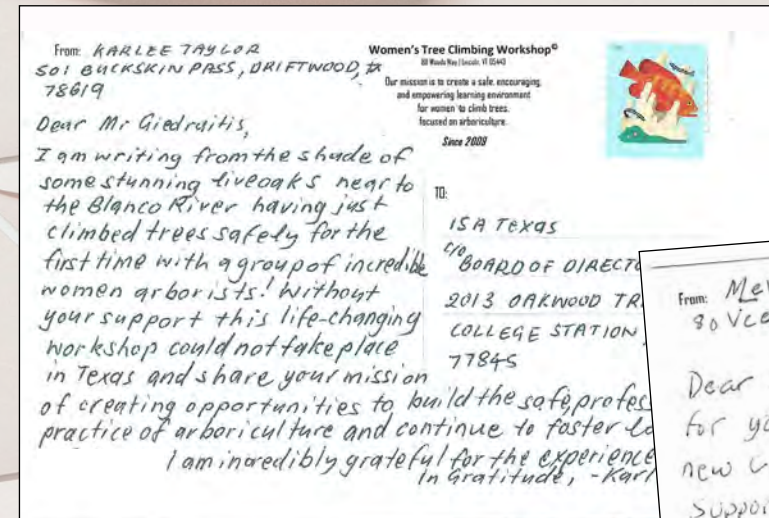 From: KARLEE TAYLOR
501 BUCKSKIN PASS, DRIFTWOOD, TX
78619
Dear Mr Giedraitis,
I am writing from the shade of
some stunning liveoaks near to
the Blanco River having just
climbed trees safely for the
first time with a group of incredible
women arborists! Without
your support this life-changing
workshop could not take place
in Texas and share your mission
of creating opportunities to build the safe, profes
practice of arboriculture and continue to foster
I am incredibly grateful for the experience
in Gratitude, -Karl
Women's Tree Climbing Workshop©
Our mission is to create a safe, encouraging,
and empowering learning environment
for women to climb trees,
focused on arboriculture.
Since 2009
TO:
ISA Texas
c/o BOARD OF DIRECTO
2013 OAKWOOD TR
COLLEGE STATION,
77845
From: Me
80
Dear
for yo
new
suppo